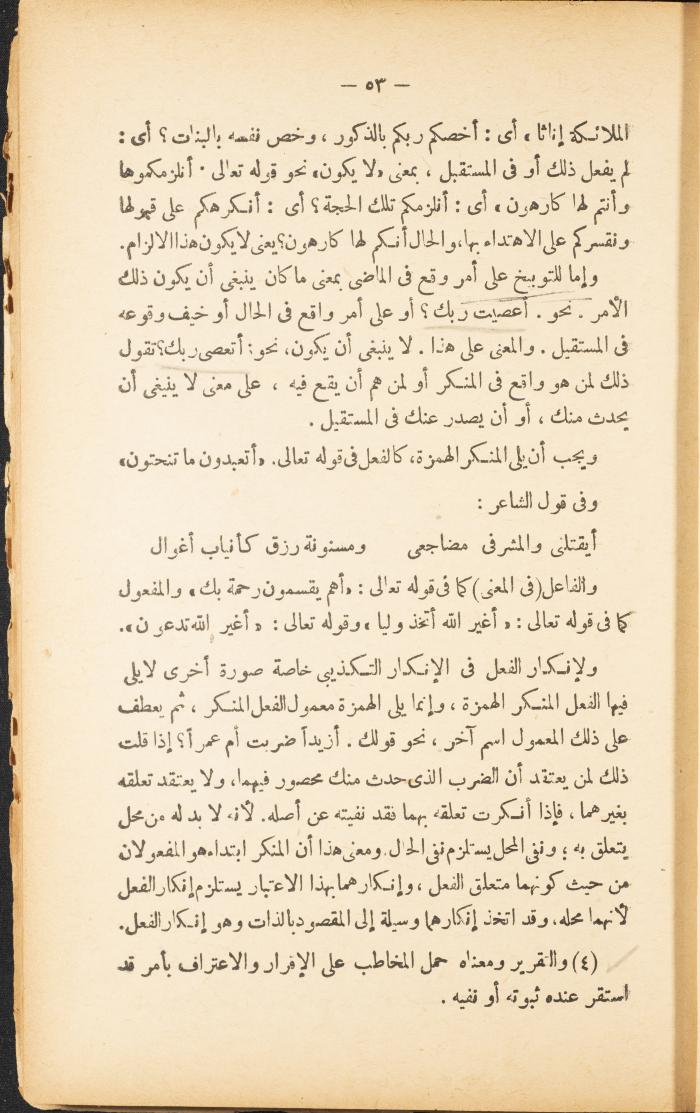 — ٥٣ —
الملائكة إناثا» أى : أخصكم ربكم بالذكور ، وخص نفسه بالبنات ؟ أى :
لم يفعل ذلك أو فى المستقبل ، بمعنى «لا يكون» نحو قوله تعالى · أنلزمكموها
وأنتم لها كارهون» أى : أنلزمكم تلك الحجة ؟ أى : أنكرهكم على قبولها
ونقسركم على الاهتداء بها، والحال أنكم لها كارهون؟ يعنى لا يكون هذا الالزام.
وإما للتوبيخ على أمر وقع فى الماضى بمعنى ما كان ينبغى أن يكون ذلك
الأمر . نحو . أعصيت ربك ؟ أو على أمر واقع فى الحال أو خيف وقوعه
فى المستقبل . والمعنى على هذا . لا ينبغى أن يكون، نحو: أتعصى ربك؟ تقول
ذلك لمن هو واقع فى المنكر أو لمن هم أن يقع فيه ، على معنى لا ينبغى أن
يحدث منك ، أو أن يصدر عنك فى المستقبل .
ويجب أن يلى المنكر الهمزة، كالفعل فى قوله تعالى. «أتعبدون ما تنحتون»
وفى قول الشاعر :
أيقتلنى والمشرفى مضاجعى ومسنونة رزق كأنياب أغوال
والفاعل (فى المعنى) كما فى قوله تعالى : «أهم يقسمون رحمة بك» والمفعول
كما فى قوله تعالى : « أغير الله أتخذ وليا » وقوله تعالى : « أغير الله تدعون».
ولإنكار الفعل فى الإنكار التكذيبى خاصة صورة أخرى لا يلى
فيها الفعل المنكر الهمزة ، وإنما يلى الهمزة معمول الفعل المنكر ، ثم يعطف
على ذلك المعمول اسم آخر ، نحو قولك . أزيداً ضربت أم عمراً ؟ إذا قلت
ذلك لمن يعتقد أن الضرب الذى حدث منك محصور فيهما، ولا يعتقد تعلقه
بغيرهما ، فإذا أنكرت تعلقه بهما فقد نفيته عن أصله. لأنه لا بد له من محل
يتعلق به ؛ ونفى المحل يستلزم نفى الحال. ومعنى هذا أن المنكر ابتداء هو المفعولان
من حيث كونهما متعلق الفعل ، وإنكارهما بهذا الاعتبار يستلزم إنكار الفعل
لأنهما محله، وقد اتخذ إنكارهما وسيلة إلى المقصود بالذات وهو إنكار الفعل.
(٤) والتقرير ومعناه حمل المخاطب على الإقرار والاعتراف بأمر قد
استقر عنده ثبوته أو نفيه .